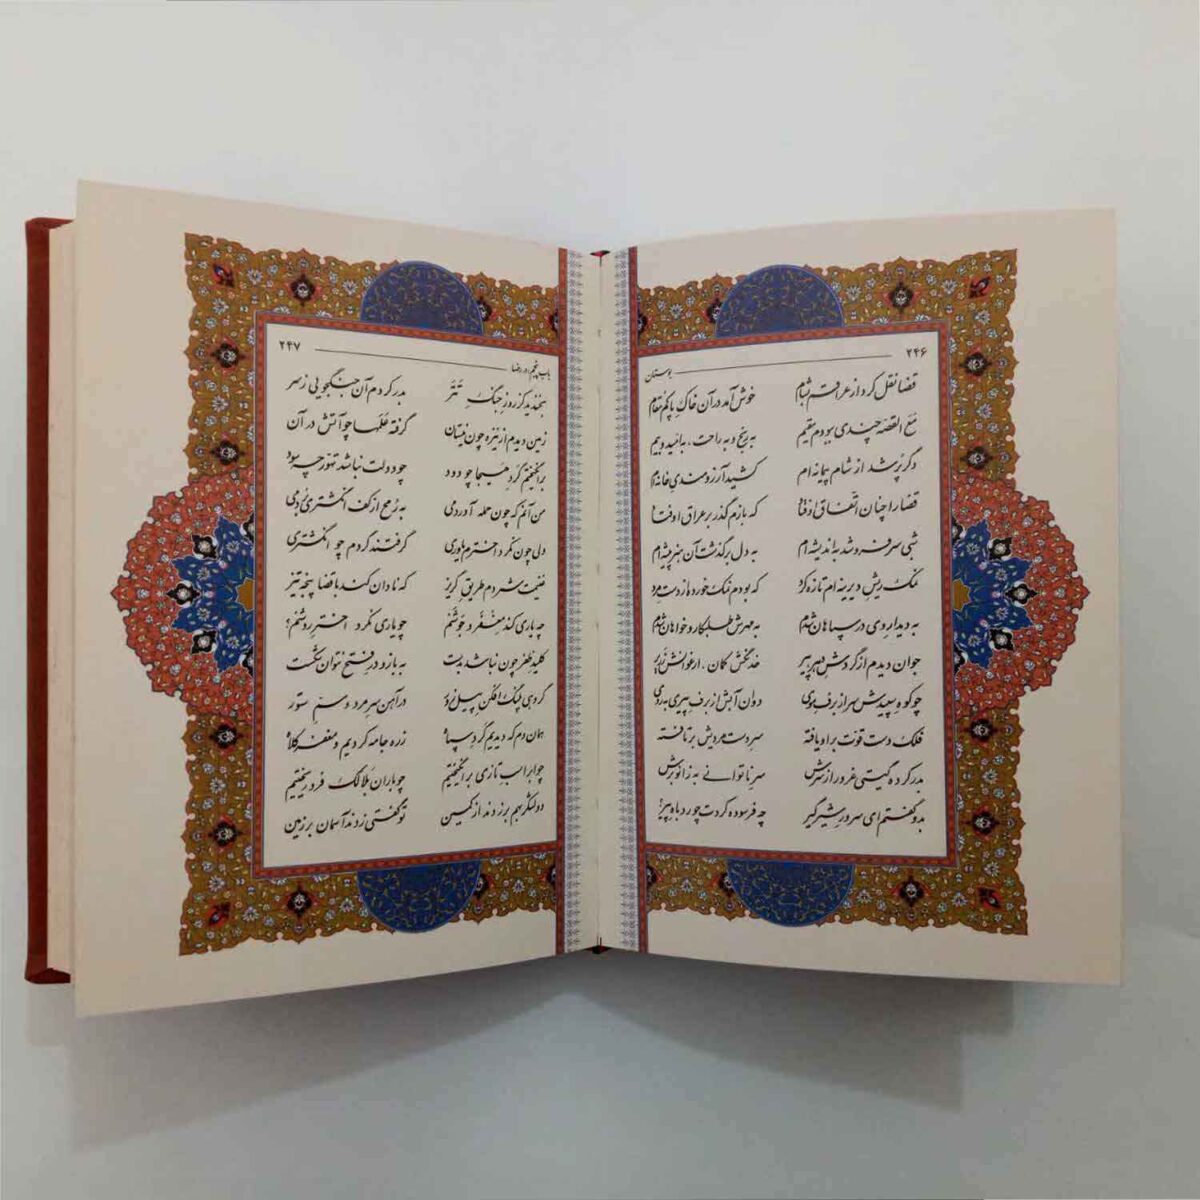 ۲۴۶ بوستان
قضا نقل کرد از عراقم به شام خوش آمد در آن خاک پاکم مقام
مع القصه چندی ببودم مقیم به رنج و به راحت، به امید و بیم
دگر پر شد از شام پیمانه‌ام کشید آرزومندی خانه‌ام
قضا را چنان اتفاق اوفتاد که بازم گذر بر عراق اوفتاد
شبی سر فرو شد به اندیشه‌ام به دل برگذشت آن هنرپیشه‌ام
نمک ریش دیرینه‌ام تازه کرد که بودم نمک خورده از دست مرد
به دیدار وی در سپاهان شدم به مهرش طلبکار و خواهان شدم
جوان دیدم از گردش دهر پیر خدنگش کمان، ارغوانش زریر
چو کوه سپیدش سر از برف موی دوان آبش از برف پیری به روی
فلک دست قوت بر او یافته سر دست مردیش برتافته
بدر کرده گیتی غرور از سرش سر ناتوانی به زانو برش
بدو گفتم ای سرور شیرگیر چه فرسوده کردت چو روباه پیر؟
باب پنجم: در رضا ۲۴۷
بخندید کز روز جنگ تتر بدر کردم آن جنگجویی ز سر
زمین دیدم از نیزه چون نیستان گرفته علمها چو آتش در آن
برانگیختم گرد هیجا چو دود چو دولت نباشد تهور چه سود
من آنم که چون حمله آوردمی به رمح از کف انگشتری بردمی
ولی چون نکرد اخترم یاوری گرفتند گردم چو انگشتری
غنیمت شمردم طریق گریز که نادان کند با قضا پنجه تیز
چه یاری کند مغفر و جوشنم چو یاری نکرد اختر روشنم؟
کلید ظفر چون نباشد به دست به بازو در فتح نتوان شکست
گروهی پلنگ افکن پیل زور در آهن سر مرد و سم ستور
همان دم که دیدیم گرد سپاه زره جامه کردیم و مغفر کلاه
چو ابر اسب تازی برانگیختیم چو باران بلالک فرو ریختیم
دو لشکر بهم بر زدند از کمین تو گفتی زدند آسمان بر زمین